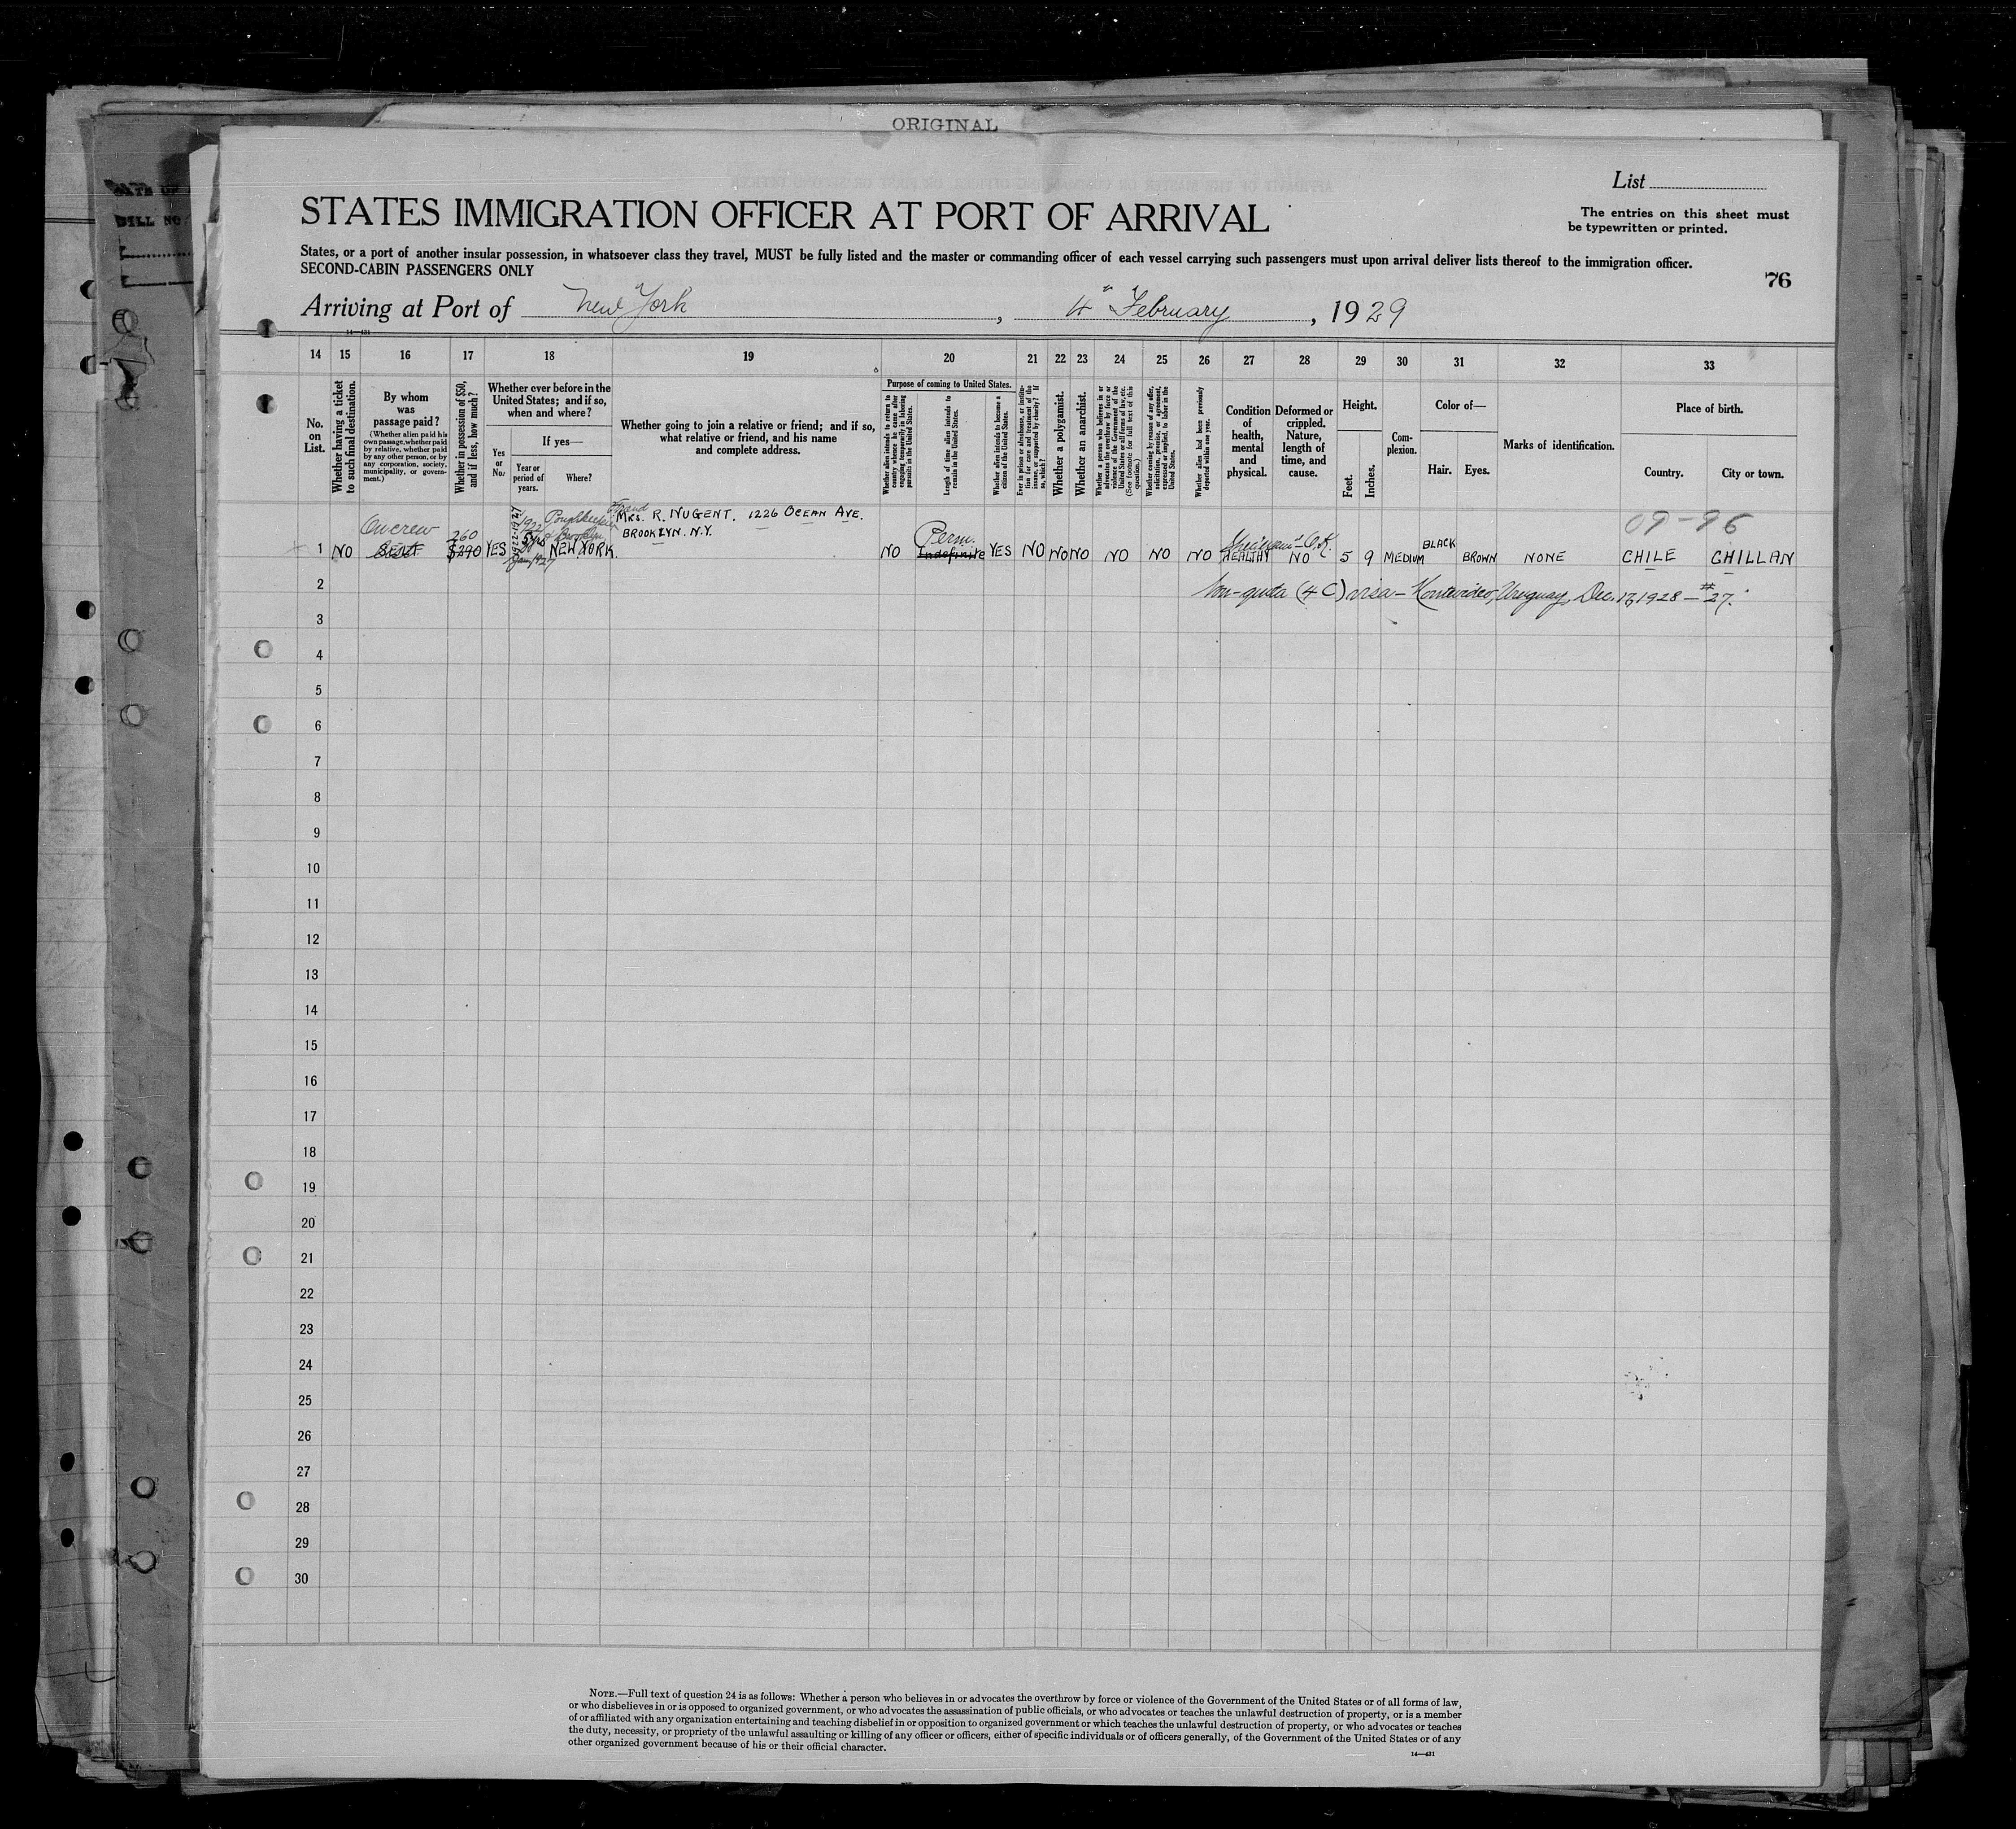 ORIGINAL
List
STATES IMMIGRATION OFFICER AT PORT OF ARRIVAL
The entries on this sheet must
be typewritten or printed.
States, or a port of another insular possession, in whatsoever class they travel, MUST be fully listed and the master or commanding officer of each vessel carrying such passengers must upon arrival deliver lists thereof to the immigration officer.
SECOND-CABIN PASSENGERS ONLY
76
Arriving at Port of New York, 4th February, 1929
14—431
14 15 16 17 18 19 20 21 22 23 24 25 26 27 28 29 30 31 32 33
No. on List.
Whether having a ticket to such final destination.
By whom was passage paid?
(Whether alien paid his own passage, whether paid by relative, whether paid by any other person, or by any corporation, society, municipality, or government.)
Whether in possession of $50, and if less, how much?
Whether ever before in the United States; and if so, when and where?
Yes or No.
If yes—
Year or period of years.
Where?
Whether going to join a relative or friend; and if so, what relative or friend, and his name and complete address.
Purpose of coming to United States.
Whether alien intends to return to country whence he came after engaging temporarily in laboring pursuits in the United States.
Length of time alien intends to remain in the United States.
Whether alien intends to become a citizen of the United States.
Ever in prison or almshouse, or institution for care and treatment of the insane, or supported by charity? If so, which?
Whether a polygamist.
Whether an anarchist.
Whether a person who believes in or advocates the overthrow by force or violence of the Government of the United States or all forms of law, etc. (See footnote for full text of this question.)
Whether coming by reason of any offer, solicitation, promise, or agreement, expressed or implied, to labor in the United States.
Whether alien had been previously deported within one year.
Condition of health, mental and physical.
Deformed or crippled. Nature, length of time, and cause.
Height.
Feet.
Inches.
Com-plexion.
Color of—
Hair.
Eyes.
Marks of identification.
Place of birth.
Country.
City or town.
09-96
On crew 260 1922-1927 Poughkeepsie Brooklyn
MRS. R. NUGENT. 1226 OCEAN AVE.
BROOKLYN. N.Y.
Perm.
1 NO SELF $290 YES NEW YORK. NO Indefinite YES NO NO NO NO NO NO HEALTHY NO 5 9 MEDIUM BLACK BROWN NONE CHILE CHILLAN
2 Non-quota (4 C) visa - Montevideo, Uruguay, Dec. 17, 1928 - #27.
3
4
5
6
7
8
9
10
11
12
13
14
15
16
17
18
19
20
21
22
23
24
25
26
27
28
29
30
NOTE.—Full text of question 24 is as follows: Whether a person who believes in or advocates the overthrow by force or violence of the Government of the United States or of all forms of law,
or who disbelieves in or is opposed to organized government, or who advocates the assassination of public officials, or who advocates or teaches the unlawful destruction of property, or is a member
of or affiliated with any organization entertaining and teaching disbelief in or opposition to organized government or which teaches the unlawful destruction of property, or who advocates or teaches
the duty, necessity, or propriety of the unlawful assaulting or killing of any officer or officers, either of specific individuals or of officers generally, of the Government of the United States or of any
other organized government because of his or their official character.
14—431